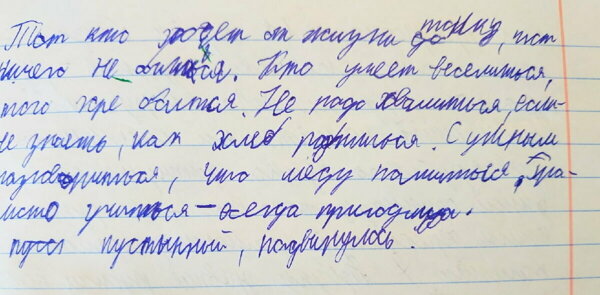 Тот кто ходет от жизни, тот
ничего не боится. Кто умеет веселиться,
того хре боится. Не надо хвалиться, если
не знаеть, как хлеб родниться. С умным
разговориться, что мёду напиться. Гра-
мото учиться – всегда пригодица.
пустынный, надвинулось.